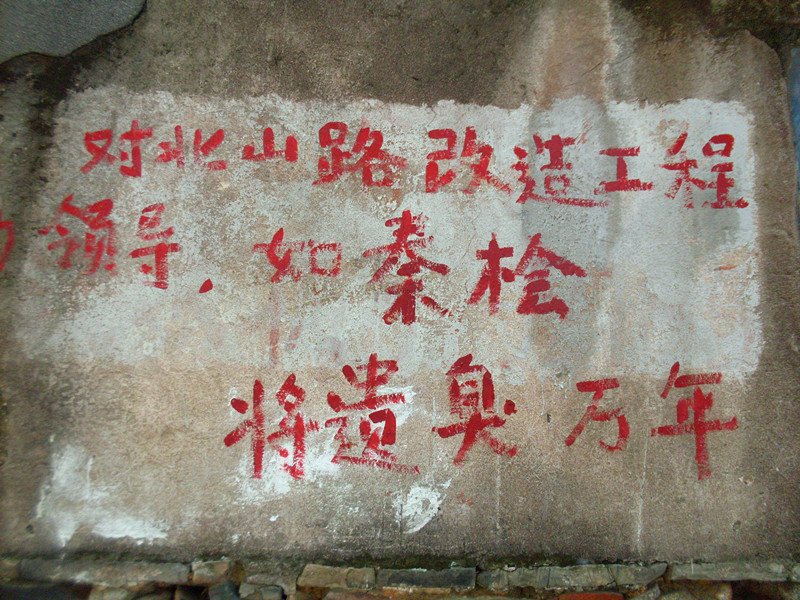 对北山路改造工程
的领导.如秦桧
将遗臭万年